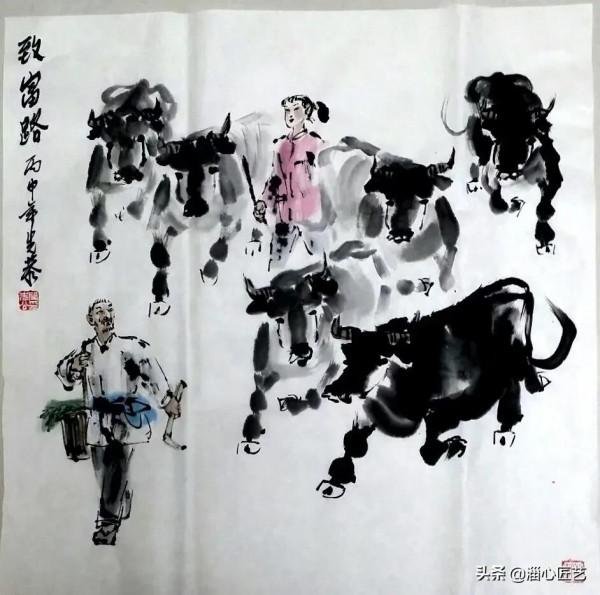 致富路 丙申年
头条 @淄心匠艺